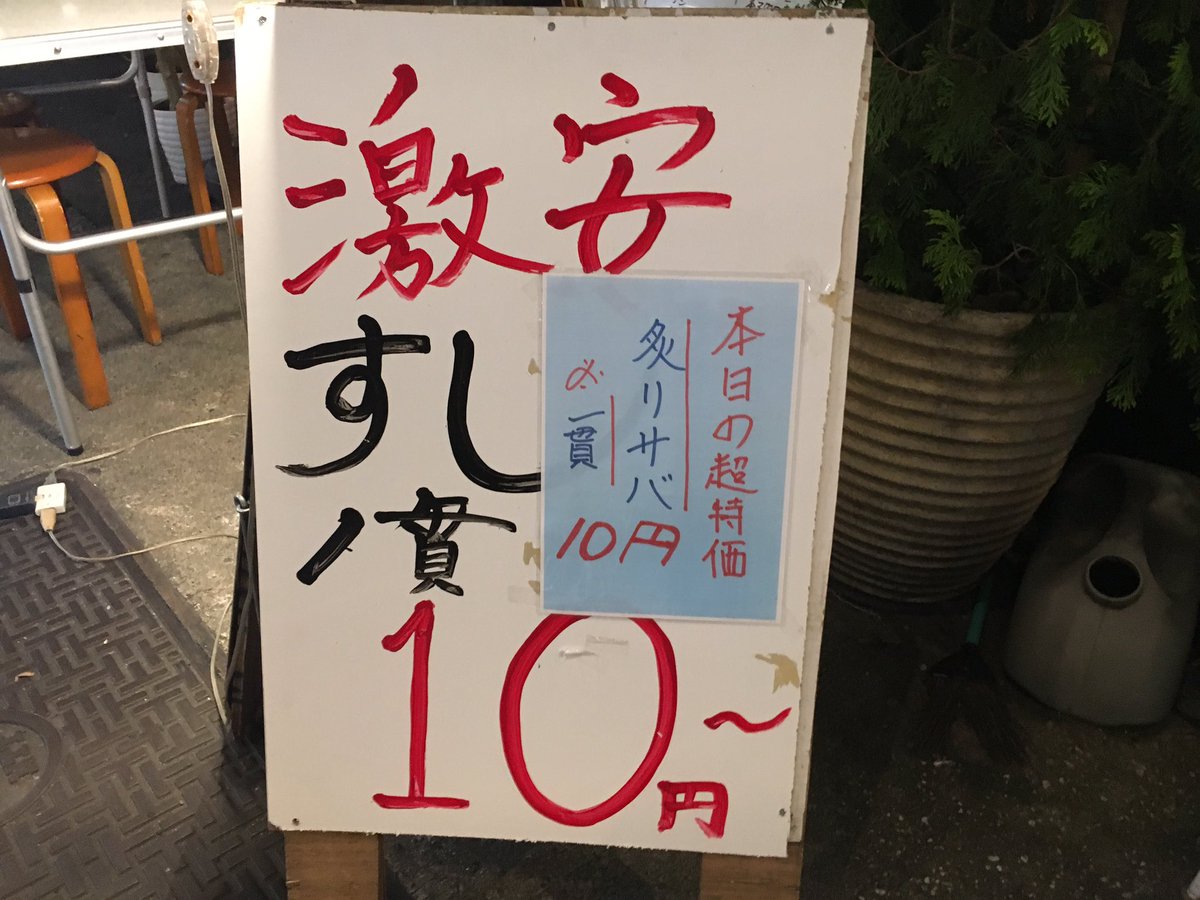 激安
すし
1貫
10円～
本日の超特価
炙りサバ
一貫
10円